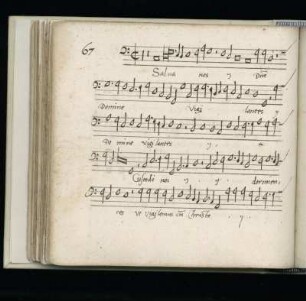 67
Salva nos
Domine Vigi lantes
Do mine vigilantes
Custodi nos dormien
tes Vt vigilemus cum Christo